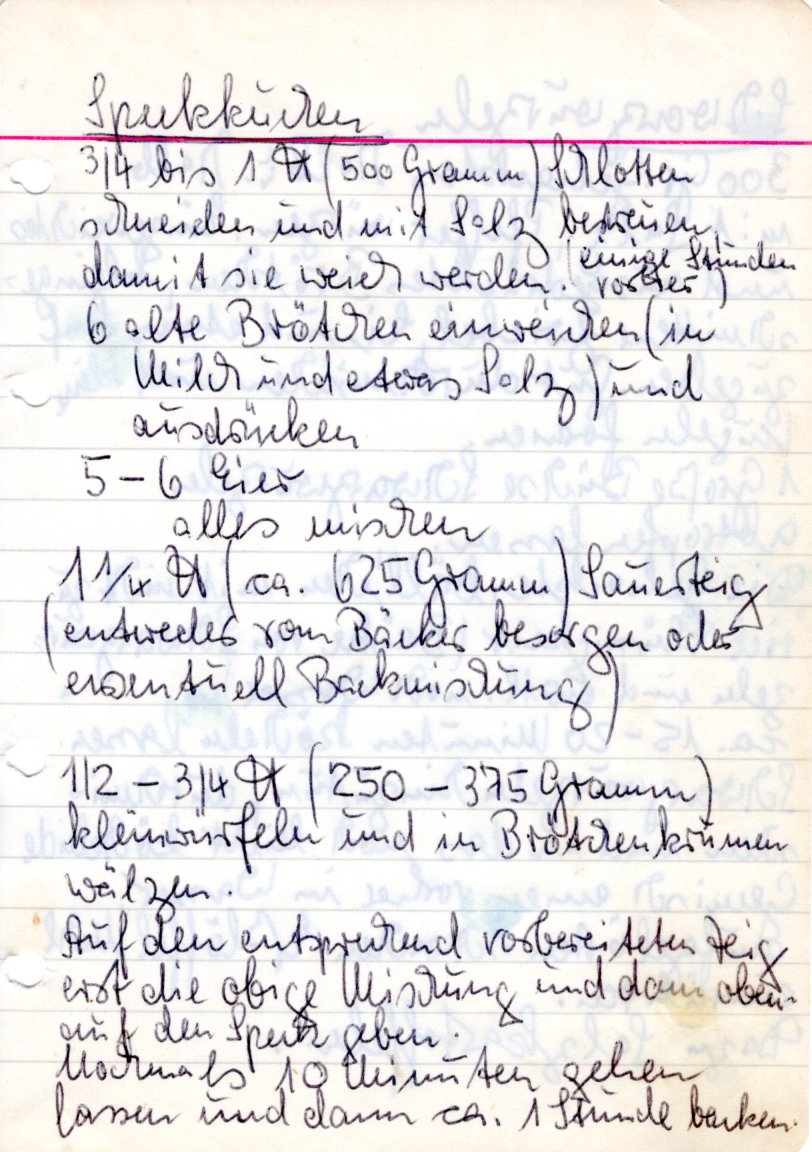 Speckkuchen
3/4 bis 1 ℔ (500 Gramm) Schlotten
schneiden und mit Salz bestreuen,
damit sie weich werden. (einige Stunden
vorher)
6 alte Brötchen einweichen (in
Milch und etwas Salz) und
ausdrücken
5 – 6 Eier
alles mischen
1 1/4 ℔ (ca. 625 Gramm) Sauerteig
(entweder vom Bäcker besorgen oder
eventuell Backmischung)
1/2 – 3/4 ℔ (250 – 375 Gramm)
kleinwürfeln und in Brötchenkrumen
wälzen.
Auf den entsprechend vorbereiteten Teig
erst die obige Mischung und dann oben-
auf den Speck geben.
Nochmals 10 Minuten gehen
lassen und dann ca. 1 Stunde backen.